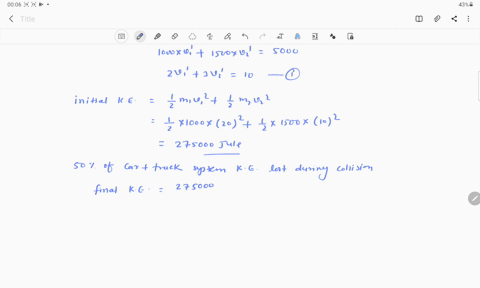 00:06
43%
Title
1000×v₁' + 1500×v₂' = 5000
2v₁' + 3v₂' = 10 — ①
initial K.E. = 1/2 m₁v₁² + 1/2 m₂v₂²
= 1/2 × 1000 × (20)² + 1/2 × 1500 × (10)²
= 275000 Jule
50% of Car + truck system K.E. lost during collision
final K.E. = 275000